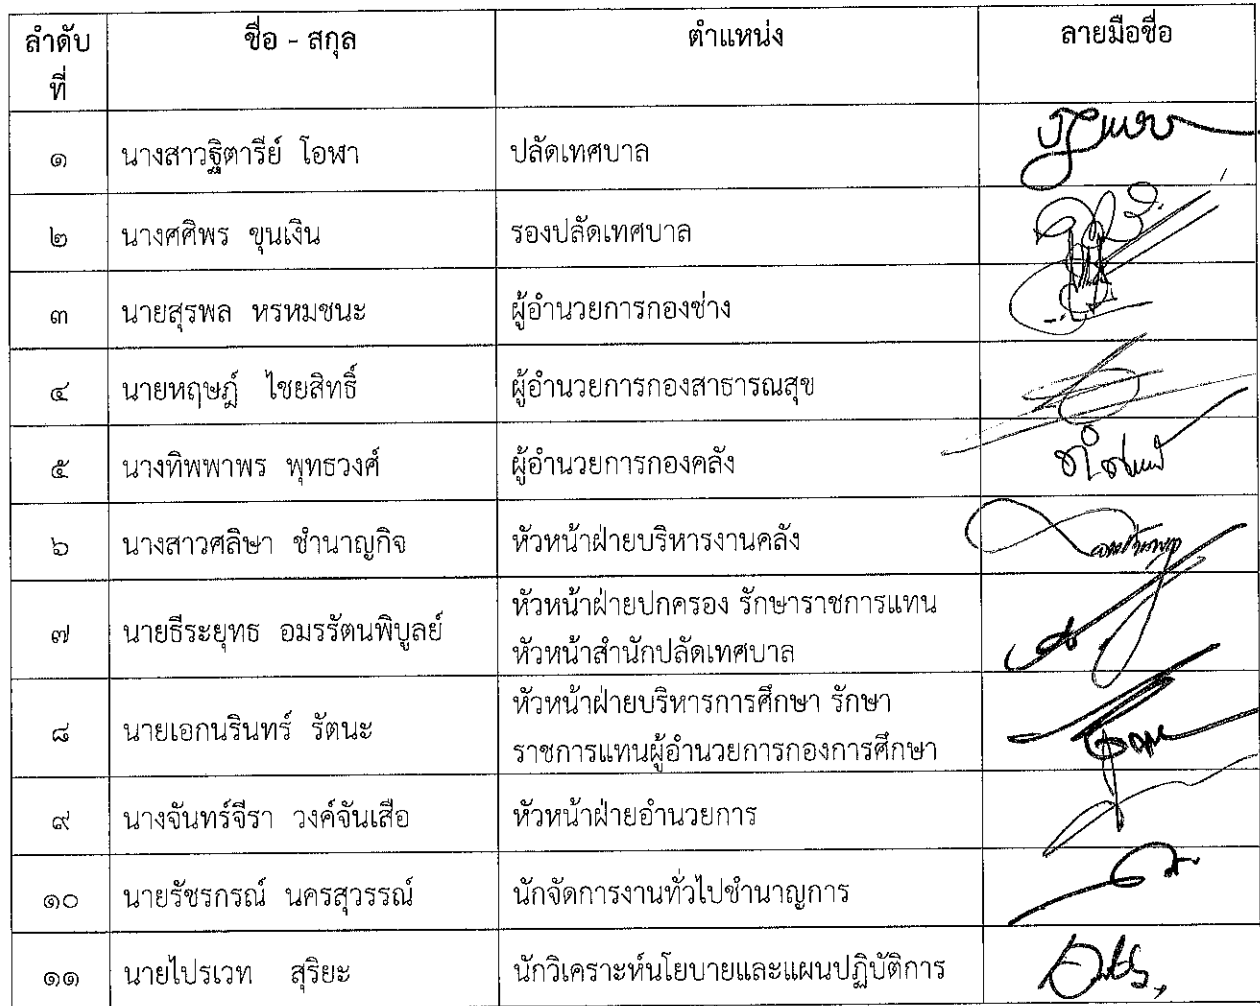 ลำดับที่ ชื่อ - สกุล ตำแหน่ง ลายมือชื่อ
๑ นางสาวฐิตารีย์ โอฬา ปลัดเทศบาล
๒ นางศศิพร ขุนเงิน รองปลัดเทศบาล
๓ นายสุรพล หรหมชนะ ผู้อำนวยการกองช่าง
๔ นายหฤษฎ์ ไชยสิทธิ์ ผู้อำนวยการกองสาธารณสุข
๕ นางทิพพาพร พุทธวงศ์ ผู้อำนวยการกองคลัง
๖ นางสาวศลิษา ชำนาญกิจ หัวหน้าฝ่ายบริหารงานคลัง
๗ นายธีระยุทธ อมรรัตนพิบูลย์ หัวหน้าฝ่ายปกครอง รักษาราชการแทน
หัวหน้าสำนักปลัดเทศบาล
๘ นายเอกนรินทร์ รัตนะ หัวหน้าฝ่ายบริหารการศึกษา รักษา
ราชการแทนผู้อำนวยการกองการศึกษา
๙ นางจันทร์จีรา วงค์จันเสือ หัวหน้าฝ่ายอำนวยการ
๑๐ นายรัชรกรณ์ นครสุวรรณ์ นักจัดการงานทั่วไปชำนาญการ
๑๑ นายไปรเวท สุริยะ นักวิเคราะห์นโยบายและแผนปฏิบัติการ